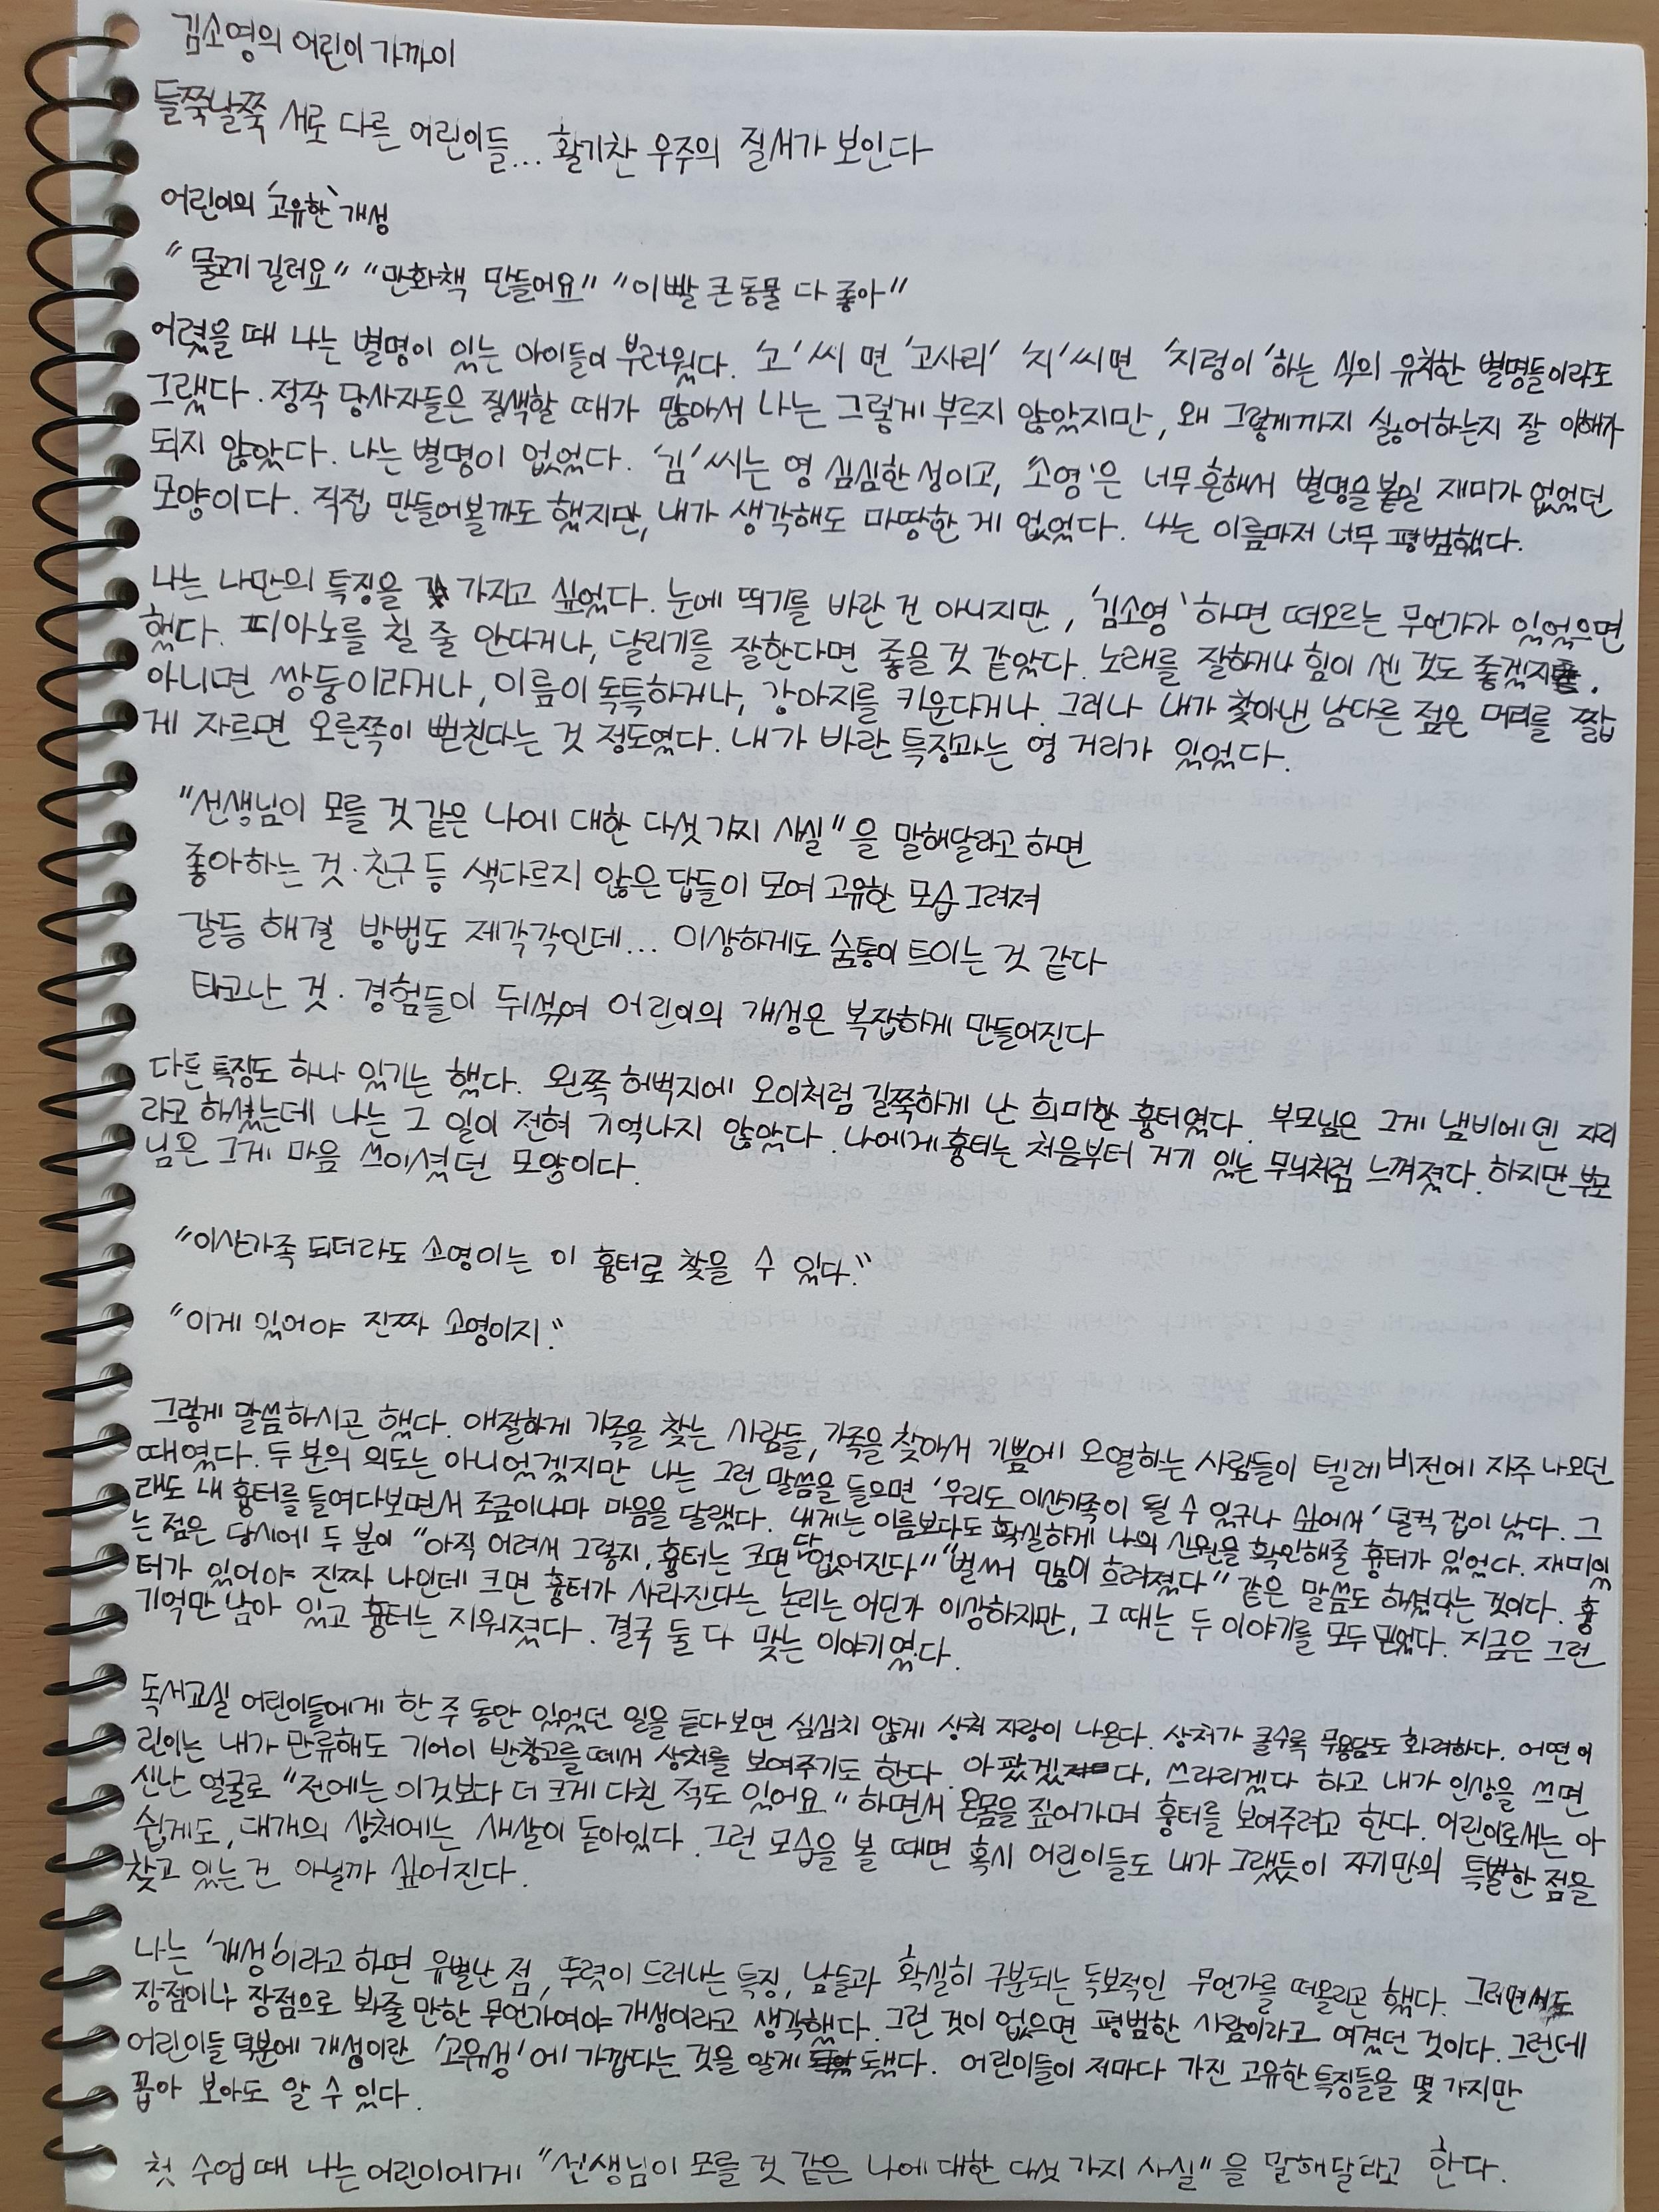 김소영의 어린이 가까이
들쭉날쭉 서로 다른 어린이들... 활기찬 우주의 질서가 보인다
어린이의 '고유한' 개성
"물고기 길러요" "만화책 만들어요" "이빨 큰 동물 다 좋아"
어렸을 때 나는 별명이 있는 아이들이 부러웠다. '고'씨 면 '고사리' '지'씨면 '지렁이'하는 식의 유치한 별명들이라도
그랬다. 정작 당사자들은 질색할 때가 많아서 나는 그렇게 부르지 않았지만, 왜 그렇게까지 싫어하는지 잘 이해가
되지 않았다. 나는 별명이 없었다. '김'씨는 영 심심한 성이고, '소영'은 너무 흔해서 별명을 붙일 재미가 없었던
모양이다. 직접 만들어볼까도 했지만, 내가 생각해도 마땅한 게 없었다. 나는 이름마저 너무 평범했다.
나는 나만의 특징을 가지고 싶었다. 눈에 띄기를 바란 건 아니지만, '김소영'하면 떠오르는 무언가가 있었으면
했다. 피아노를 칠 줄 안다거나, 달리기를 잘한다면 좋을 것 같았다. 노래를 잘하거나 힘이 센 것도 좋겠지.
아니면 쌍둥이라거나, 이름이 독특하거나, 강아지를 키운다거나. 그러나 내가 찾아낸 남다른 점은 머리를 짧
게 자르면 오른쪽이 뻗친다는 것 정도였다. 내가 바란 특징과는 영 거리가 있었다.
"선생님이 모를 것 같은 나에 대한 다섯 가지 사실"을 말해달라고 하면
좋아하는 것·친구 등 색다르지 않은 답들이 모여 고유한 모습 그려져
갈등 해결 방법도 제각각인데... 이상하게도 숨통이 트이는 것 같다
타고난 것·경험들이 뒤섞여 어린이의 개성은 복잡하게 만들어진다
다른 특징도 하나 있기는 했다. 왼쪽 허벅지에 오이처럼 길쭉하게 난 희미한 흉터였다. 부모님은 그게 냄비에 덴 자리
라고 하셨는데 나는 그 일이 전혀 기억나지 않았다. 나에게 흉터는 처음부터 거기 있는 무늬처럼 느껴졌다. 하지만 부모
님은 그게 마음 쓰이셨던 모양이다.
"이산가족 되더라도 소영이는 이 흉터로 찾을 수 있다."
"이게 있어야 진짜 소영이지."
그렇게 말씀하시곤 했다. 애절하게 가족을 찾는 사람들, 가족을 찾아서 기쁨에 오열하는 사람들이 텔레비전에 자주 나오던
때였다. 두 분의 의도는 아니었겠지만 나는 그런 말씀을 들으면 '우리도 이산가족이 될 수 있구나 싶어서' 덜컥 겁이 났다. 그
래도 내 흉터를 들여다보면서 조금이나마 마음을 달랬다. 내게는 이름보다도 확실하게 나의 신원을 확인해줄 흉터가 있었다. 재미있
는 점은 당시에 두 분이 "아직 어려서 그렇지, 흉터는 크면 다 없어진다" "벌써 많이 흐려졌다" 같은 말씀도 하셨다는 것이다. 흉
터가 있어야 진짜 나인데 크면 흉터가 사라진다는 논리는 어딘가 이상하지만, 그 때는 두 이야기를 모두 믿었다. 지금은 그런
기억만 남아 있고 흉터는 지워졌다. 결국 둘 다 맞는 이야기였다.
독서교실 어린이들에게 한 주 동안 있었던 일을 듣다보면 심심치 않게 상처 자랑이 나온다. 상처가 클수록 무용담도 화려하다. 어떤 어
린이는 내가 만류해도 기어이 반창고를 떼서 상처를 보여주기도 한다. 아팠겠다. 쓰라리겠다 하고 내가 인상을 쓰면
신난 얼굴로 "전에는 이것보다 더 크게 다친 적도 있어요" 하면서 온몸을 짚어가며 흉터를 보여주려고 한다. 어린이로서는 아
쉽게도, 대개의 상처에는 새살이 돋아있다. 그런 모습을 볼 때면 혹시 어린이들도 내가 그랬듯이 자기만의 특별한 점을
찾고 있는 건 아닐까 싶어진다.
나는 '개성'이라고 하면 유별난 점, 뚜렷이 드러나는 특징, 남들과 확실히 구분되는 독보적인 무언가를 떠올리곤 했다. 그러면서도
장점이나 장점으로 봐줄 만한 무언가여야 개성이라고 생각했다. 그런 것이 없으면 평범한 사람이라고 여겼던 것이다. 그런데
어린이들 덕분에 개성이란 '고유성'에 가깝다는 것을 알게 됐다. 어린이들이 저마다 가진 고유한 특징들을 몇 가지만
꼽아 보아도 알 수 있다.
첫 수업 때 나는 어린이에게 "선생님이 모를 것 같은 나에 대한 다섯 가지 사실"을 말해달라고 한다.